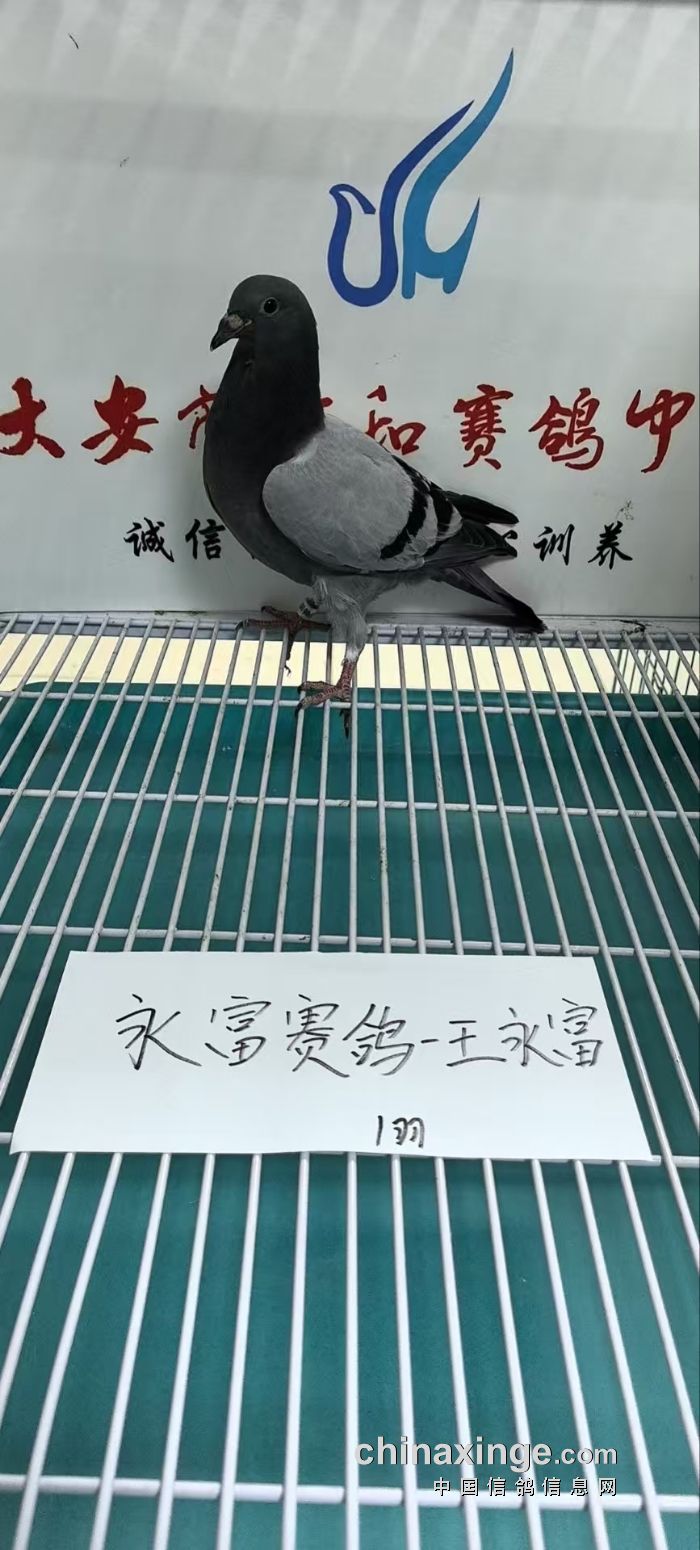 大安市 和赛鸽中
诚信 训养
永富赛鸽-王永富
1羽
chinaxinge.com
中国信鸽信息网